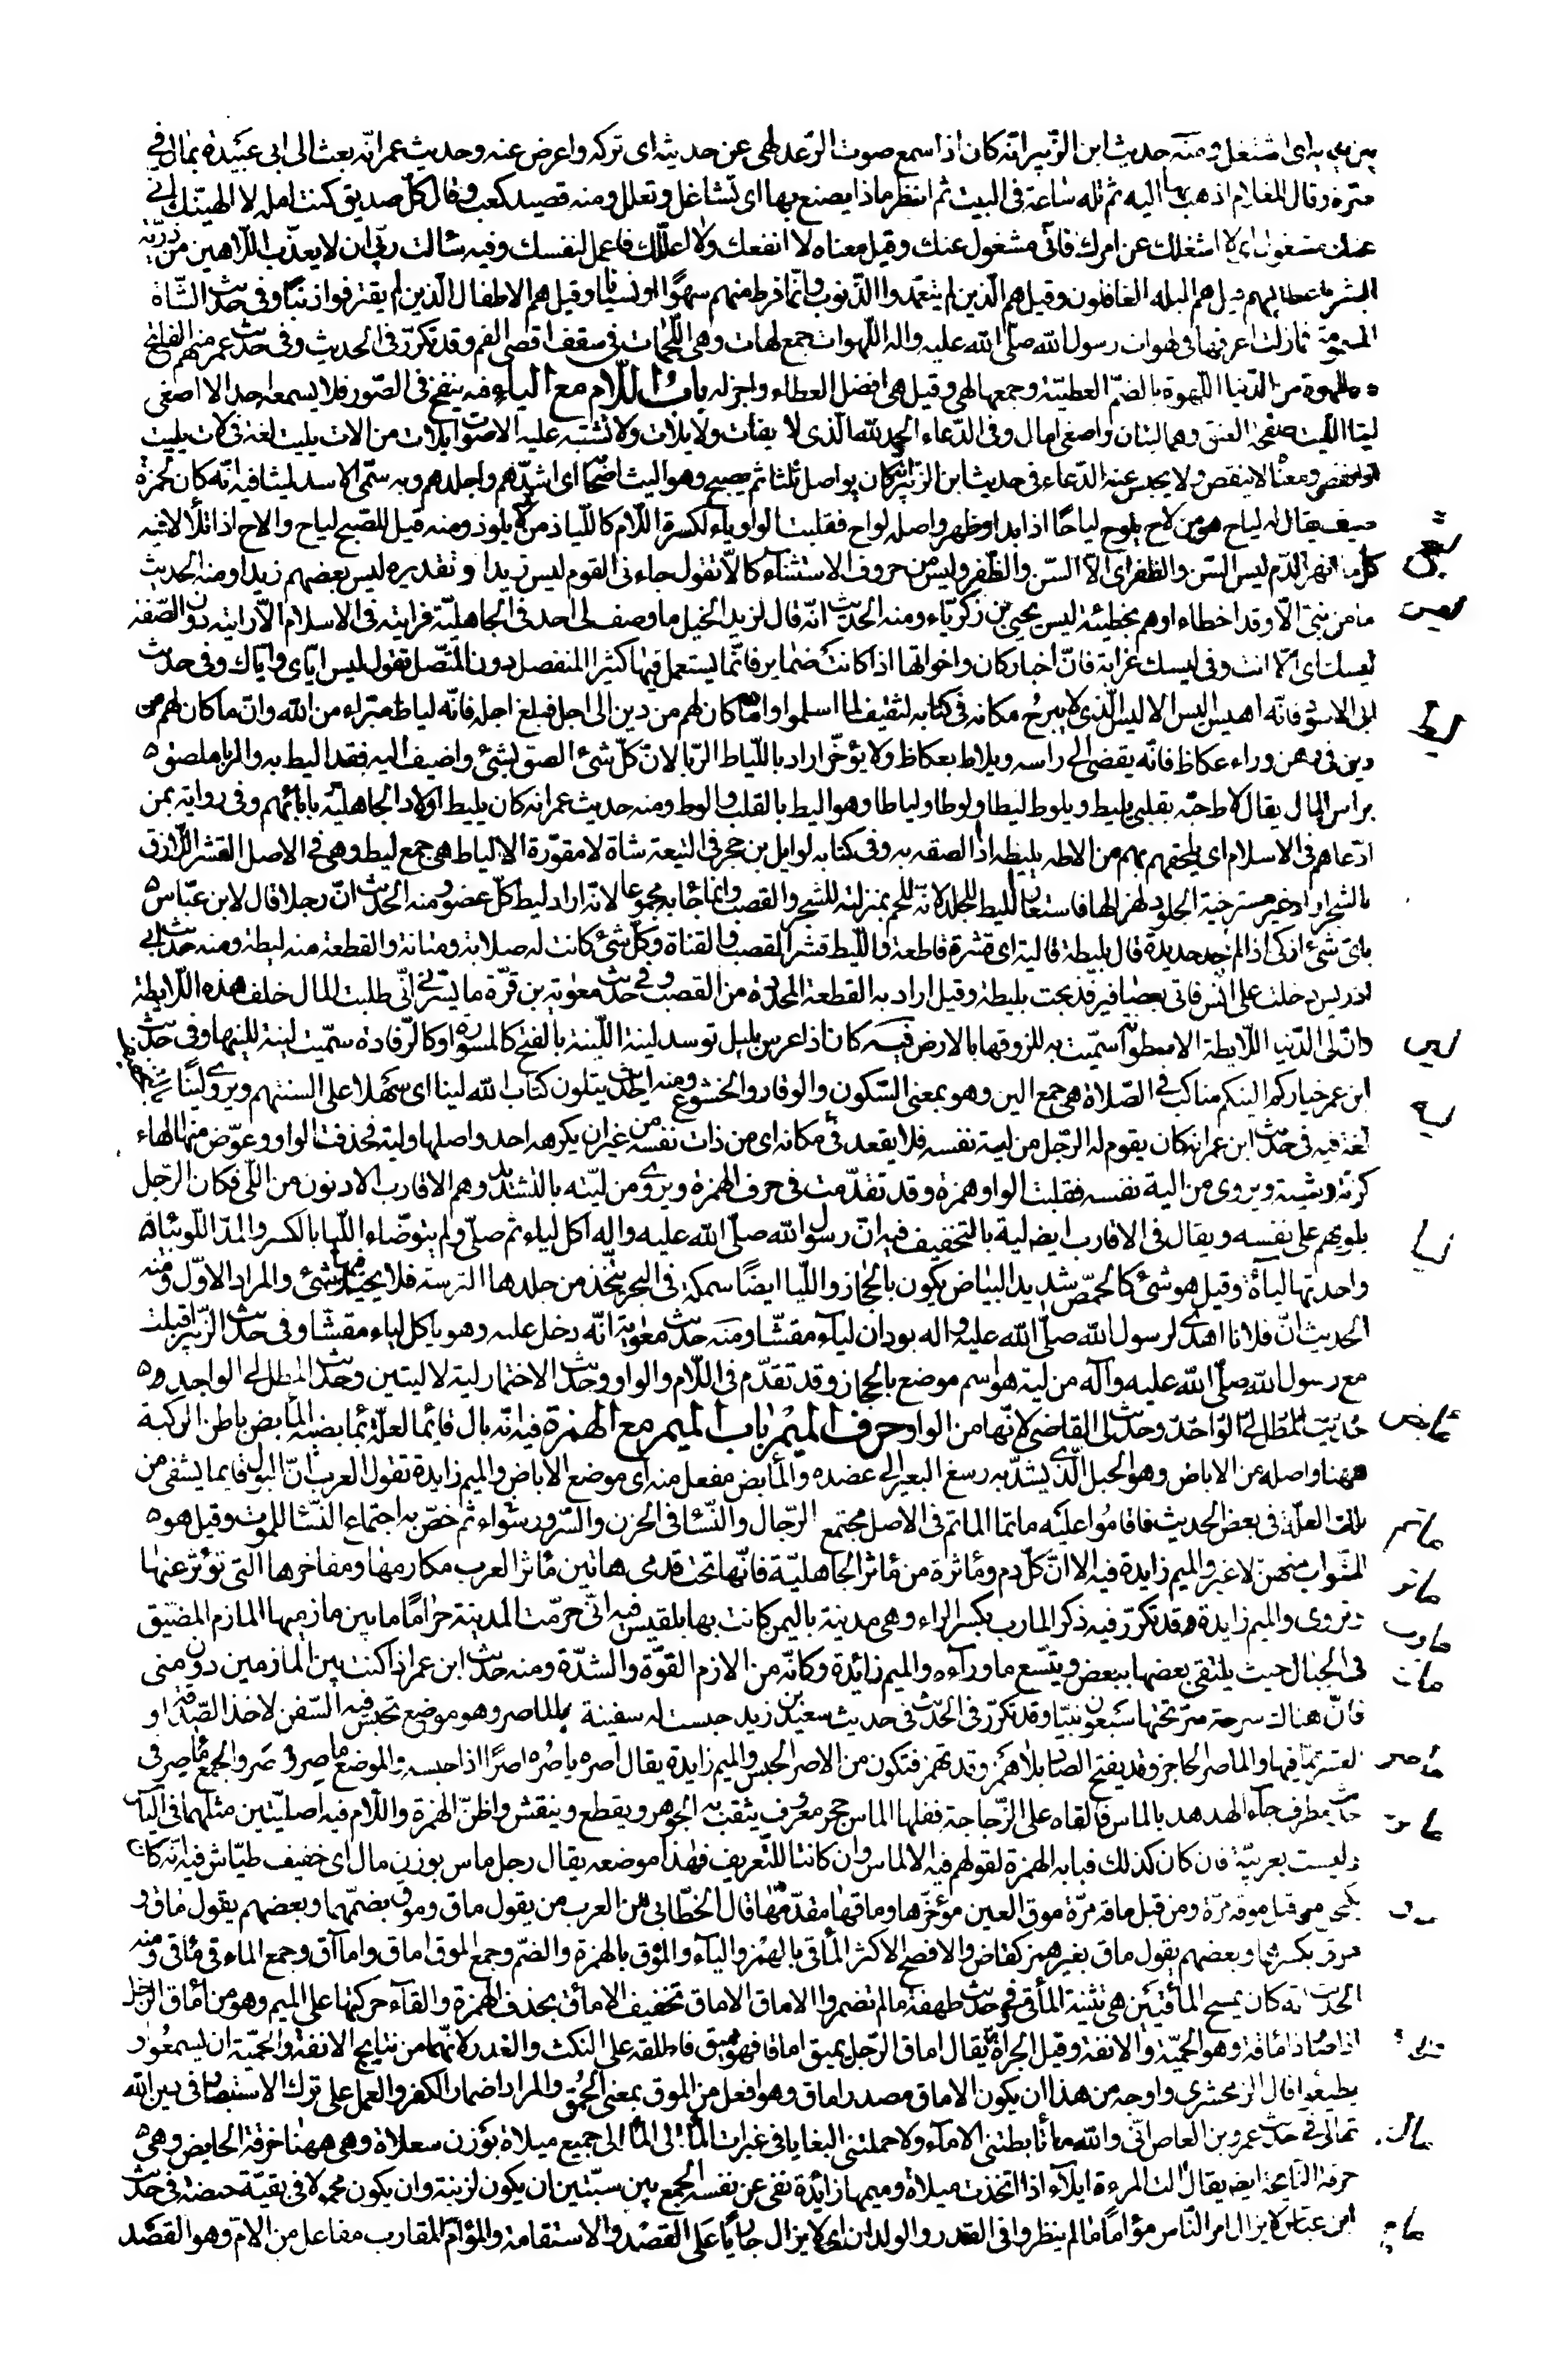 بين يديه اى اشتغل ومنه حديث ابن الزّبير انّه كان اذا سمع صوت الرّعد لهى عن حديثه اى تركه واعرض عنه وحديث عمر انّه بعث الى ابى عبيدة بمال في
صرّة وقال للغلام اذهب بها اليه ثم تله ساعة فى البيت ثم انظر ماذا يصنع بها اى تشاغل وتعلل ومنه قصيد كعب وقال كلّ صديق كنت امله لا الهينّك انى
عنك مشغول اى لا اشغلك عن امرك فانّى مشغول عنك وقيل معناه لا انفعك ولا اعللك فاعمل لنفسك وفيه سألت ربّى ان لا يعذّب اللّاهين من ذريّة
البشر فاعطانيهم قيل هم البله الغافلون وقيل هم الّذين لم يتعمّدوا الذّنوب وانّما فرط منهم سهوًا او نسيانا وقيل هم الاطفال الّذين لم يقترفوا ذنبًا وفى حديث الشّاة
المسمومة فما زلت اعرفها فى لهوات رسول الله صلّى الله عليه واله اللّهوات جمع لهات وهى اللّحمات فى سقف اقصى الفم وقد تكرّر فى الحديث وفى حديث عمر منهم الفاتح
فاه للهوة من الدّنيا اللّهوة بالضمّ العطيّة وجمعها لهى وقيل هى افضل العطاء واجزله باب اللّام مع الياء فيه ينفخ فى الصّور فلا يسمعه احد الا اصغى
ليتا اللّيت صفحة العنق وهما ليتان واصغى امال وفى الدّعاء الحمد لله الّذى لا يفات ولا يلات ولا تشتبه عليه الاصوات يلات من الات يليت لغة فى لات يليت
اذا نقص ومعناه لا ينقص ولا يحبس عنه الدّعاء فى حديث ابن الزّبير انّه كان يواصل ثلثا ثم يصبح وهو اليث اصحابه اى اشدّهم واجلدهم وبه سمّى الاسد ليثا فيه انّه كان لحمزة
سيف يقال له لياح هو من لاح يلوح لياحًا اذا بدا وظهر واصله لواح فقلبت الواو ياء لكسرة اللّام كاللّياذ من لاذ يلوذ ومنه قيل للصّبح لياح والاح اذا تلألأ فيه
كل ما انهر الدّم ليس السّن والظفر اى الّا السّن والظّفر وليس من حروف الاستثناء كالّا تقول جاءنى القوم ليس زيدا وتقديره ليس بعضهم زيدا ومنه الحديث
ما من نبىّ الّا وقد اخطاء اوهم بخطيئة ليس يحيى بن زكريّاء ومنه الحديث انّه قال لزيد الخيل ما وصف لى احد فى الجاهليّة فرايته فى الاسلام الّا رايته دون الصّفة
ليسك اى الّا انت وفى ليسك غرابة فانّ اخبار كان واخواتها اذا كانت ضماير فانّما يستعمل فيها كثيرا المنفصل دون المتّصل تقول ليس اياى واياك وفى حديث
ابى الاسود فانّه اهيس اليس الاليس الّذى لا يبرح مكانه فى كتابه لثقيف لما اسلموا وانّ ما كان لهم من دين الى اجل فبلغ اجله فانّه لياط مبراء من الله وانّ ما كان لهم من
دين فى رهن وراء عكاظ فانّه يقضى الى راسه ويلاط بعكاظ ولا يؤخّر اراد باللّياط الرّبا لانّ كلّ شئ الصق بشئ واضيف اليه فقد اليط به والربا ملصق
براس المال يقال لاط حبّه بقلبى يليط ويلوط ليطا ولوطا ولياطا وهو اليط بالقلب والوط ومنه حديث عمر انه كان يليط اولاد الجاهليّة باباءهم وفى رواية بمن
ادّعاهم فى الاسلام اى يلحقهم بهم من الاطه يليطه اذا الصقه به وفى كتابه لوايل بن حجر فى التيعة شاة لا مقوّرة الالياط هى جمع ليط وهى فى الاصل القشر اللّازق
بالشجر اراد غير مسترخية الجلود لهزالها فاستعار اللّيط للجلد لانّه للّحم بمنزلته للشجر والقصب وانما جاء به مجموعا لانّه اراد ليط كلّ عضو ومنه الحديث انّ رجلا قال لابن عبّاس
باىّ شئ اذكى اذا لم نجد حديدة قال بليطة فالية اى قشرة قاطعة واللّيط قشر القصب والقناة وكلّ شئ كانت له صلابة ومتانة والقطعة منه ليطة ومنه حديث ابى
ادريس دخلت على انس فاتى بعصافير فذبحت بليطة وقيل اراد به القطعة المحدّدة من القصب وفى حديث معوية بن قرّة ما يسرّنى انّى طلبت المال خلف هذه اللّايطة
وانّ لى الدّنيا اللّايطة الاسطوانة سمّيت به للزوقها بالارض فيه كان اذا عرس بليل توسد لينة اللّينة بالفتح كالمسورة او كالرّفادة سمّيت لينة للينها وفى حديث
ابن عمر خياركم الينكم مناكب فى الصّلاة هى جمع الين وهو بمعنى السّكون والوقار والخشوع ومنه الحديث يتلون كتاب الله لينا اى سهلا على السنتهم ويروى لينًا
لغة فيه فى حديث ابن عمر انه كان يقوم له الرّجل من لية نفسه فلا يقعد فى مكانه اى من ذات نفسه من غير ان يكرهه احد واصلها ولية فحذفت الواو وعوّض منها الهاء
كزنة وشية ويروى من الية نفسه فقلبت الواو همزة وقد تقدّمت فى حرف الهمزة ويروى من ليّته بالتشديد وهم الاقارب الادنون من اللّى فكان الرّجل
يلويهم على نفسه ويقال فى الاقارب ايضا لية بالتّخفيف فيه انّ رسول الله صلّى الله عليه واله اكل لياء ثم صلّى ولم يتوضّاء اللّيا بالكسر والمدّ اللّوبياء
واحدتها لياءة وقيل هو شئ كالحمّص شديد البياض يكون بالحجاز واللّيا ايضًا سمكة فى البحر يتّخذ من جلدها الترسة فلا يحيك فيها شئ والمراد الاوّل ومنه
الحديث انّ فلانا اهدى لرسول الله صلّى الله عليه واله بودان لياء مقشّا ومنه حديث معوية انّه دخل عليه وهو ياكل لياء مقشّا وفى حديث الزّبير اقبلت
مع رسول الله صلّى الله عليه وآله من لية هو اسم موضع بالحجاز وقد تقدّم فى اللّام والواو وحديث الاختمار لية لا ليتين وحديث المطل لىّ الواجد
وحديث لىّ القاضى لانّها من الواو حرف الميم باب الميم مع الهمزة فيه انّه بال قايما لعلّة بمابضيه المأبض باطن الركبة
ههنا واصله من الاباض وهو الحبل الّذى يشدّ به رسغ البعير الى عضده والمأبض مفعل منه اى موضع الاباض والميم زايدة تقول العرب انّ البول قايما يشفى من
تلك العلّة فى بعض الحديث فاقاموا عليه ماتما الماتم فى الاصل مجتمع الرّجال والنّساء فى الحزن والسّرور سواء ثم خصّ به اجتماع النّساء للموت وقيل هو
الشّواب منهنّ لا غير والميم زايدة فيه الا انّ كلّ دم ومأثرة من مآثر الجاهليّة فانّها تحت قدمى هاتين مآثر العرب مكارمها ومفاخرها التى تؤثر عنها
وتروى والميم زايدة وقد تكرّر فيه ذكر المارب بكسر الراء وهى مدينة باليمن كانت بها بلقيس فيه انّى حرّمت المدينة حرامًا ما بين مازميها المازم المضيق
فى الجبال حيث يلتقى بعضها ببعض ويتّسع ماوراءه والميم زائدة وكانّه من الازم القوّة والشدّة ومنه حديث ابن عمر اذا كنت بين المازمين دون منى
فانّ هناك سرحة سرّ تحتها سبعون نبيّا وقد تكرّر فى الحديث فى حديث سعيد بن زيد حبست له سفينة بالماصر وهو موضع تحبس فيه السّفن لاخذ الصّدقة او
العشر ممّا فيها والماصر الحاجز وقد يفتح الصّاد بلا همز وقد تهمز فتكون من الاصر الحبس والميم زايدة يقال اصره ياصره اصرًا اذا حبسه والموضع ماصر والجمع مآصر فى
حديث مطرف جاء الهدهد بالماس فالقاه على الزّجاجة ففلها الماس حجر معروف يثقب به الجوهر ويقطع وينقش واظنّ الهمزة واللّام فيه اصليّتين مثلهما فى الياس
وليست بعربيّة فان كان كذلك فبابه الهمزة لقولهم فيه الالماس وان كانتا للتّعريف فهذا موضعه يقال رجل ماس بوزن مال اى خفيف طيّاش فيه انّه كان
يكتحل من قبل موقه مرّة ومن قبل ماقه مرّة موق العين مؤخّرها وماقها مقدّمها قال الخطّابى من العرب من يقول ماق وموق بضمّهما وبعضهم يقول ماق و
موق بكسرهما وبعضهم يقول ماق بغير همز كقاض والافصح الاكثر المأقى بالهمز والياء والموق بالهمزة والضّم وجمع الموق اماق واماآق وجمع الماءقى مئاقى ومنه
الحديث انه كان يمسح المأقيين هى تثنية المأقى وفى حديث طهفة ما لم تضمروا الاماق الاماق تخفيف الاماق بحذف الهمزة والقاء حركتها على الميم وهو من امأق الرّجل
اذا صار ذا ماقة وهو الحميّة والانفة وقيل الجراة يقال اماق الرّجل يميق اماقا فهو مميق فاطلقه على النكث والغدر لانّهما من نتايج الانفة والحميّة ان يسمعوا و
يطيعوا قال الزمخشرى واوجه من هذا ان يكون الاماق مصدر اماق وهو افعل من الموق بمعنى الحمق والمراد اضمار الكفر والعمل على ترك الاستبصار فى دين الله
تعالى فى حديث عمرو بن العاص انّى والله ما تأبطتنى الاماء ولا حملتنى البغايا فى غبرات المآلى المآلى جميع ميلاة بوزن سعلاة وهى ههنا خرقة الحايض وهى
خرقة النّايحة ايضا يقال الت المرءة ايلاء اذا اتخذت ميلاة وميمها زائدة نفى عن نفسه الجمع بين سبّتين ان يكون لزنية وان يكون محمولا فى بقيّة حيضة فى حديث
ابن عبّاس لا يزال امر النّاس مؤامّا ما لم ينظروا فى القدر والولدان اى لا يزال جاريًا على القصد والاستقامة والمؤام المقارب مفاعل من الامّ وهو القصد